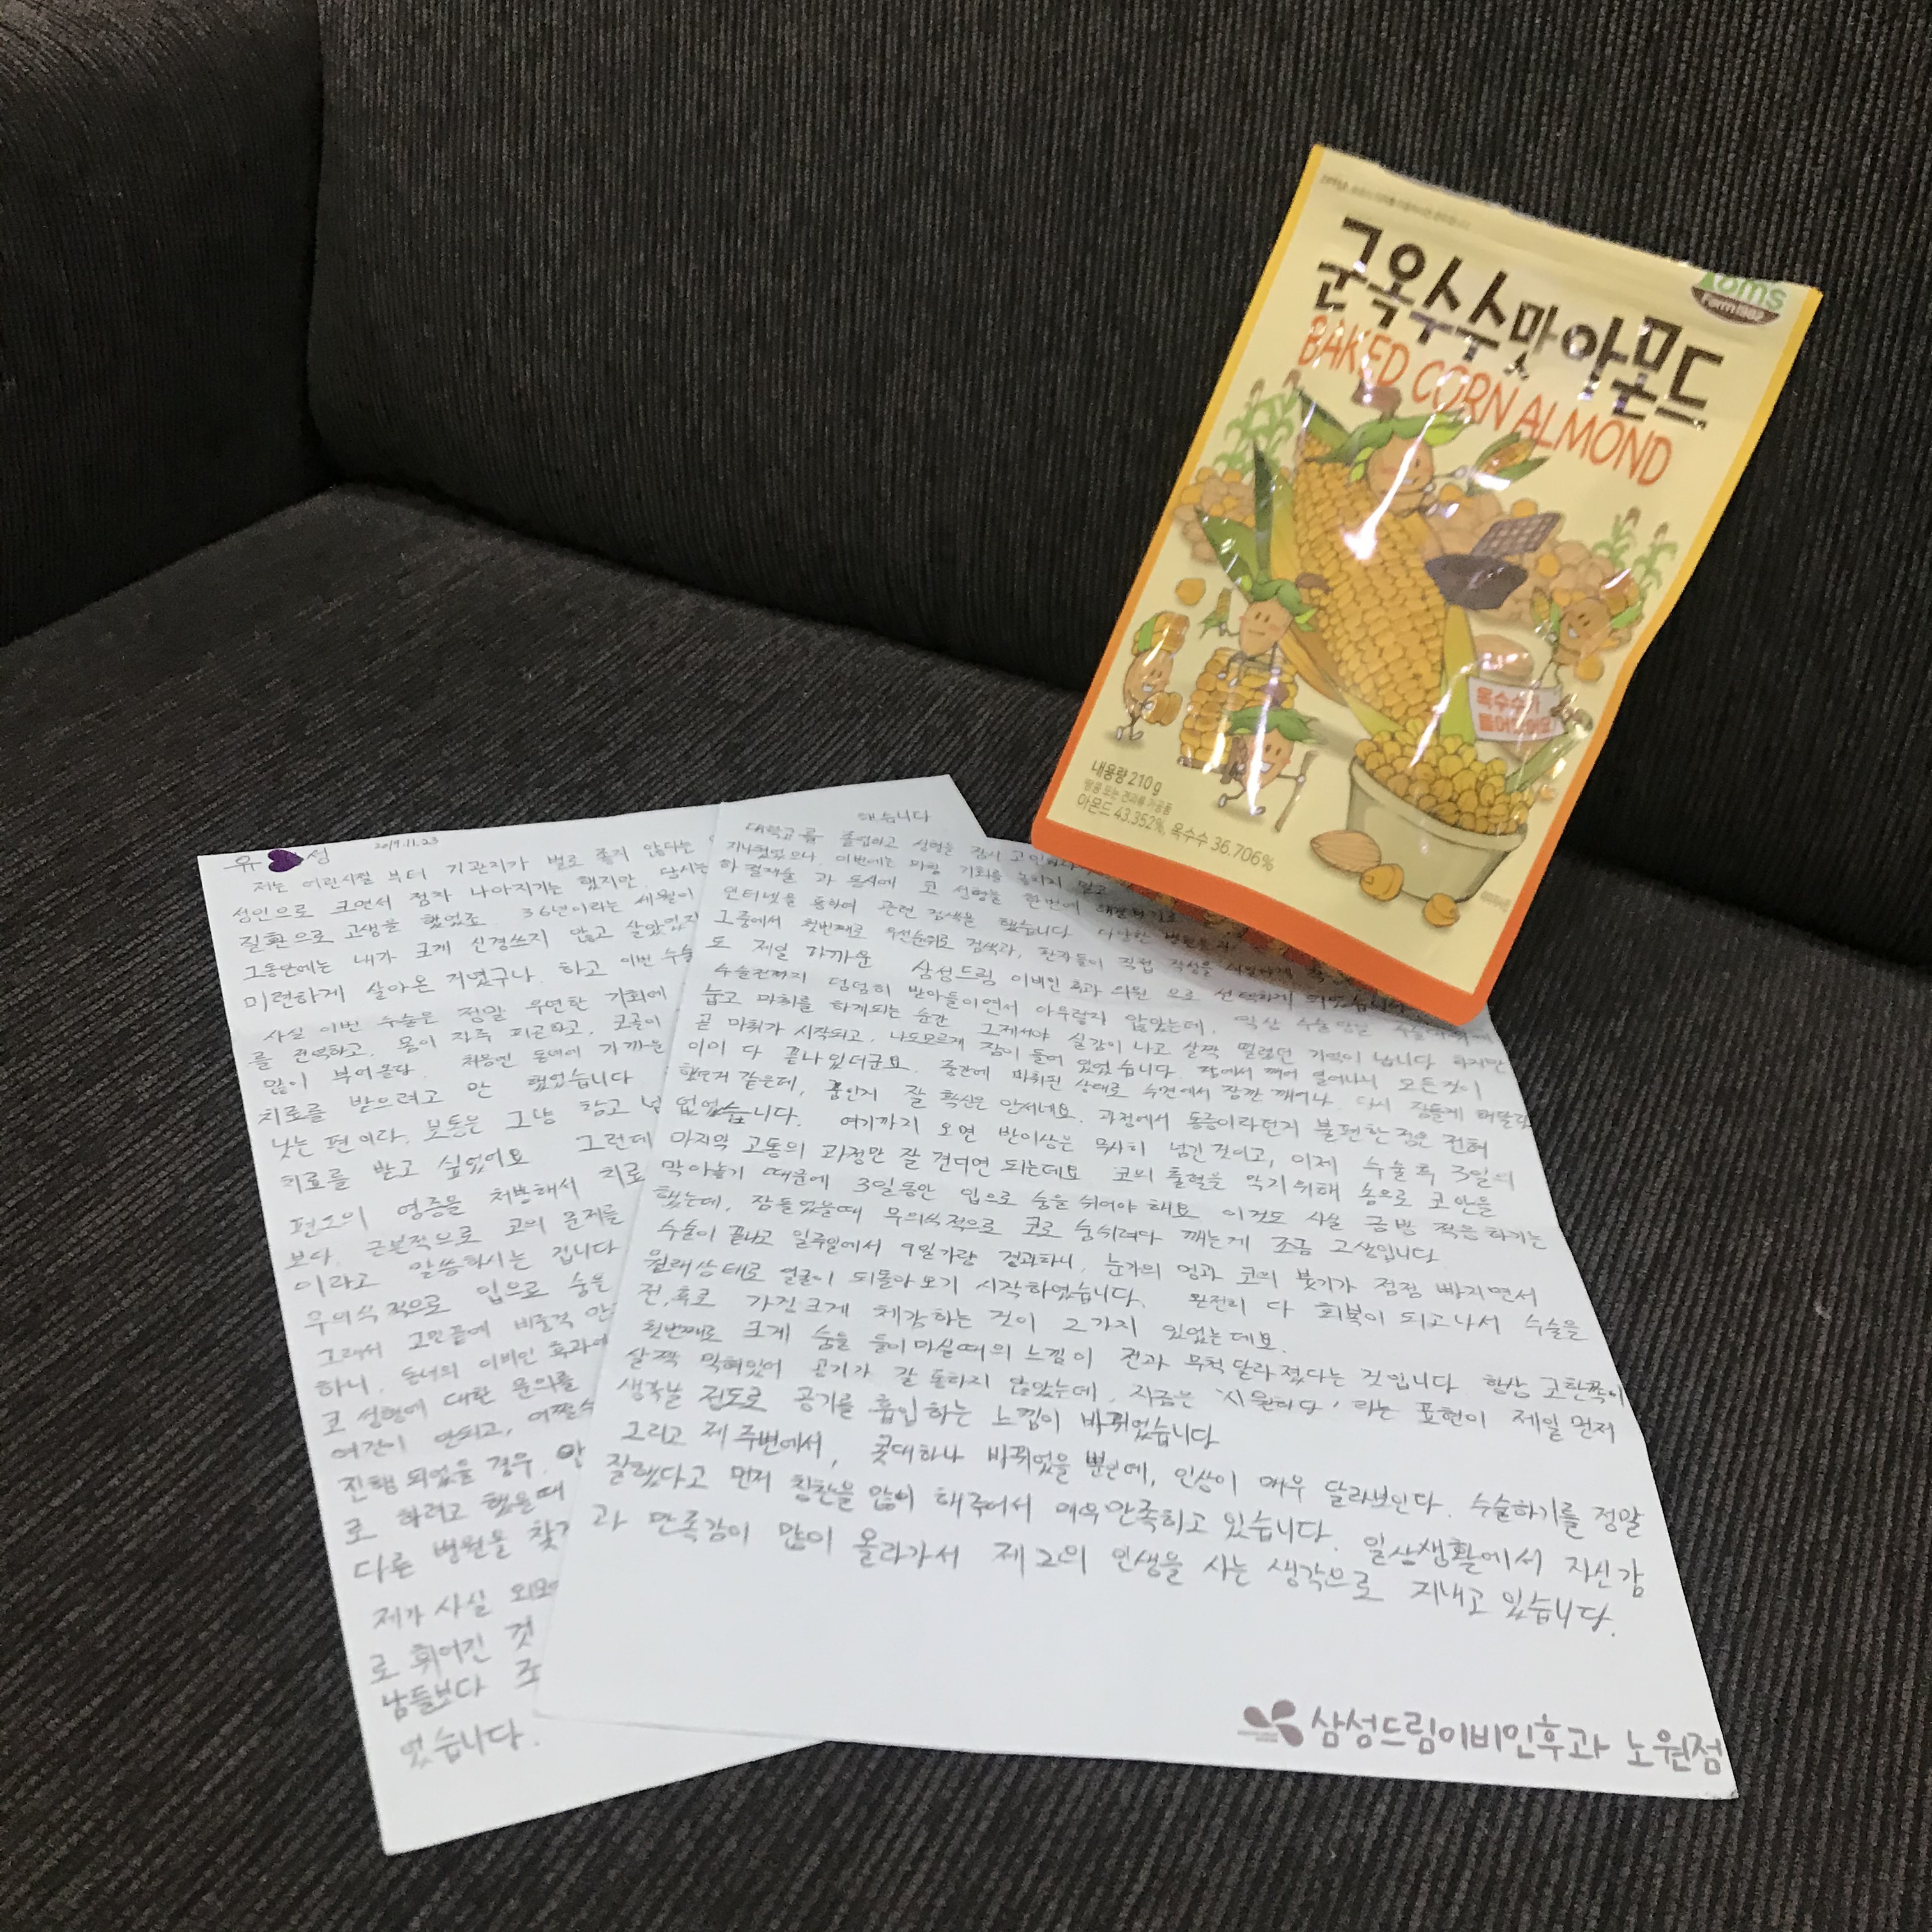 군옥수수맛아몬드
BAKED CORN ALMOND
옥수수가
내용량 210g
땅콩 또는 견과류 가공품
아몬드 43.352%, 옥수수 36.706%
유 성 2019.11.23
저는 어린시절 부터 기관지가 별로 좋지 않다는
성인으로 크면서 점차 나아지기는 했지만, 당시는
질환으로 고생을 했었죠 36년이라는 세월이
그동안에는 내가 크게 신경쓰지 않고 살았었지
미련하게 살아온 거였구나. 하고 이번 수술
사실 이번 수술은 정말 우연한 기회에
몸이 자주 피곤하고, 코골이
많이 부어올라 처음엔 동네에 가까운
치료를 받으려고 안 했었습니다
낫는 편이라. 보통은 그냥 참고 넘
치료를 받고 싶었어요 그런데
편도의 염증을 처방해서 치료
보다. 근본적으로 코의 문제를
이라고 말씀하시는 겁니다
무의식적으로 입으로 숨을
그래서 고민끝에 비중격 만
하니. 동네의 이비인후과에
코 성형에 대한 문의를
여건이 안되고, 어쩔수
진행 되었을 경우.
로 하려고 했을때
다른 병원을 찾기
제가 사실 외모
로 휘어진 것
남들보다 조
었습니다.
대학교를 졸업하고 성형을 잠시
지나쳤었으나, 이번에는 마침 기회를 놓치지 말고
과 동시에 코 성형을 한번에
인터넷을 통하여 관련 검색을 했습니다 다양한 병원들과
그중에서 첫번째로 우선순위로 검색과, 환자들이 직접 작성을
도 제일 가까운 삼성드림 이비인후과 의원 으로 선택하게 되었습니다
수술전까지 덤덤히 받아들이면서 아무렇지 않았는데, 막상 수술당일
눕고 마취를 하게되는 순간 그제서야 실감이 나고 살짝 떨렸던 기억이 납니다 하지만
곧 마취가 시작되고, 나도모르게 잠이 들어 있었습니다. 잠에서 깨어 일어나니 모든것이
이미 다 끝나있더군요. 중간에 마취된 상태로 수면에서 잠깐 깨어나, 다시 잠들게 해달라
했던거 같은데, 꿈인지 잘 확신은 안서네요. 과정에서 통증이라던지 불편한 점은 전혀
없었습니다. 여기까지 오면 반이상은 무사히 넘긴 것이고, 이제 수술후 3일의
마지막 고통의 과정만 잘 견디면 되는데요 코의 출혈을 막기위해 솜으로 코안을
막아놓기 때문에 3일동안 입으로 숨을 쉬어야 해요 이것도 사실 금방 적응하기는
했는데, 잠들었을때 무의식적으로 코로 숨쉬려다 깨는게 조금 고생입니다
수술이 끝나고 일주일에서 9일가량 경과하니, 눈가의 멍과 코의 붓기가 점점 빠지면서
원래상태로 얼굴이 되돌아오기 시작하였습니다. 완전히 다 회복이 되고나서 수술을
전,후로 가장크게 체감하는 것이 2가지 있었는데요.
첫번째로 크게 숨을 들이마실때의 느낌이 전과 무척 달라졌다는 것입니다 항상 코한쪽이
살짝 막혀있어 공기가 잘 통하지 않았는데, 지금은 '시원하다' 라는 표현이 제일 먼저
생각날 정도로 공기를 흡입하는 느낌이 바뀌었습니다
그리고 제 주변에서, 콧대하나 바뀌었을 뿐인데, 인상이 매우 달라보인다. 수술하기를 정말
잘했다고 먼저 칭찬을 많이 해주어서 매우 만족하고 있습니다. 일상생활에서 자신감
과 만족감이 많이 올라가서 제2의 인생을 사는 생각으로 지내고 있습니다.
삼성드림이비인후과 노원점